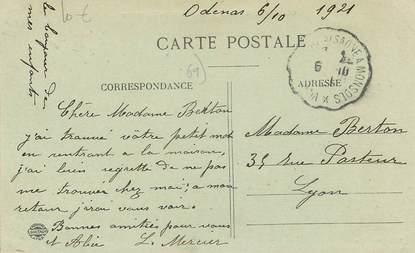 10 €
Odenas 6/10 1921
CARTE POSTALE
69
CORRESPONDANCE
ADRESSE
Chère Madame Berton
j'ai trouvé vôtre petit mot
en rentrant a la maison,
j'ai bien regretté de ne pas
me trouver chez moi; a mon
retour j'irai vous voir.
Bonnes amitiés pour vous
et Alice L. Mercier
le bonjour de
mes enfants
Madame Berton
35 Rue Pasteur
Lyon